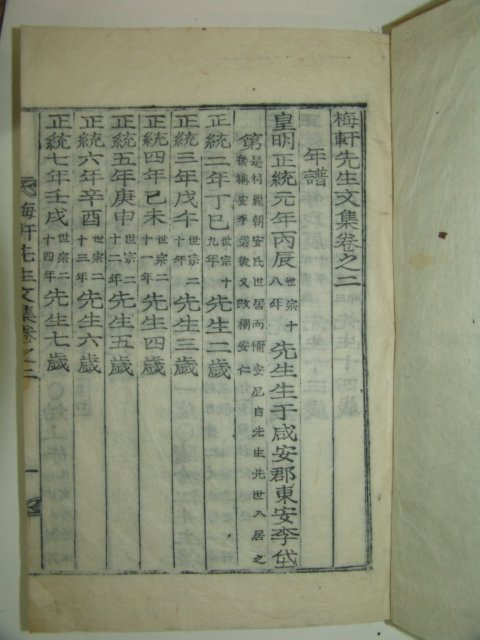 梅軒先生文集卷之二
年譜
皇明正統元年丙辰 世宗十八年 先生生于咸安郡東安李垈
第 是村麗朝安氏世居而稱安尼自先生先世入居之後稱安李垈後又改稱安仁
正統二年丁巳 世宗十九年 先生二歲
正統三年戊午 世宗二十年 先生三歲
正統四年己未 世宗二十一年 先生四歲
正統五年庚申 世宗二十二年 先生五歲
正統六年辛酉 世宗二十三年 先生六歲
正統七年壬戌 世宗二十四年 先生七歲
梅軒先生文集卷之二
一